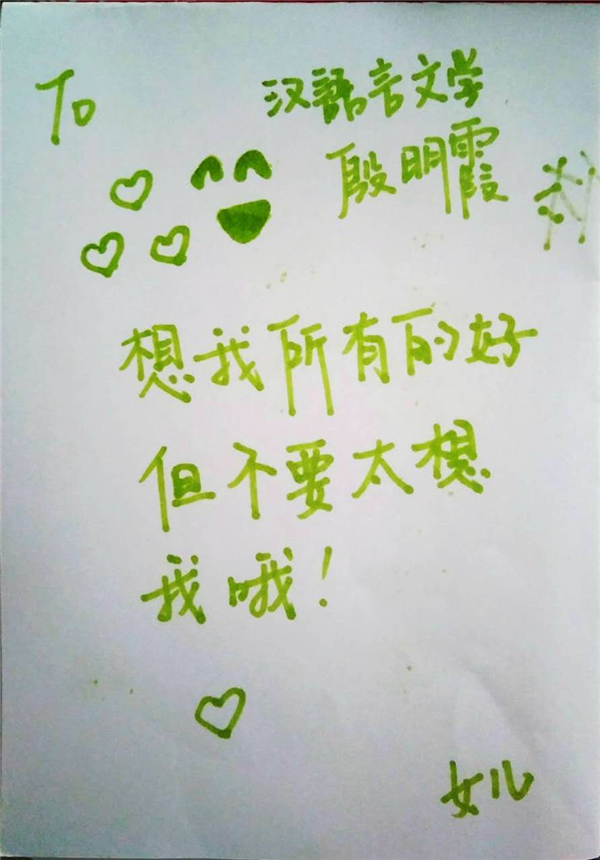 To
汉語言文学
殷明霞
想我所有的好
但不要太想
我哦！
女儿